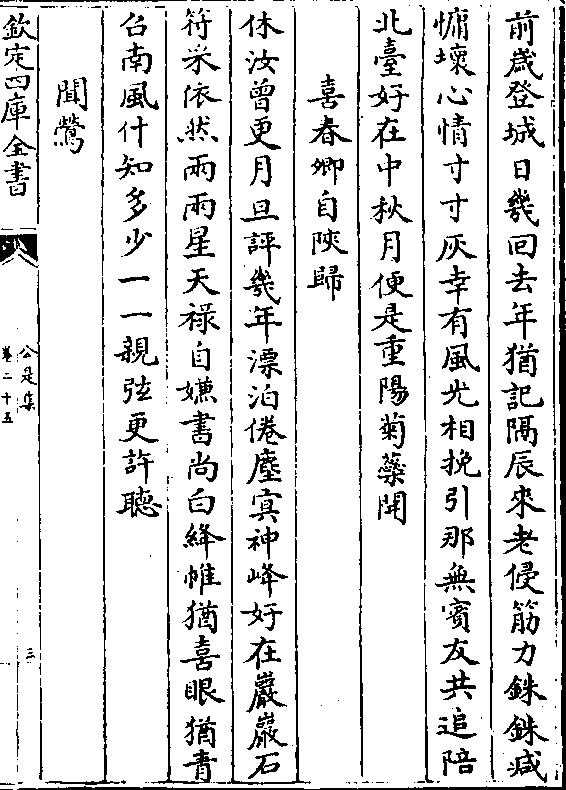 前歲登城日幾回去年猶記隔辰來老侵筋力銖銖減
慵壞心情寸寸灰幸有風光相挽引那無賓友共追陪
北臺好在中秋月便是重陽菊蘂開
喜春卿自陜歸
休汝曾更月旦評幾年漂泊倦塵寞神峰好在巖巖石
符米依然兩兩星天祿自嫌書尚白絳帷猶喜眼猶青
召南風什知多少一一親弦更許聽
聞鶯
欽定四庫全書
公是集
卷二十五
三